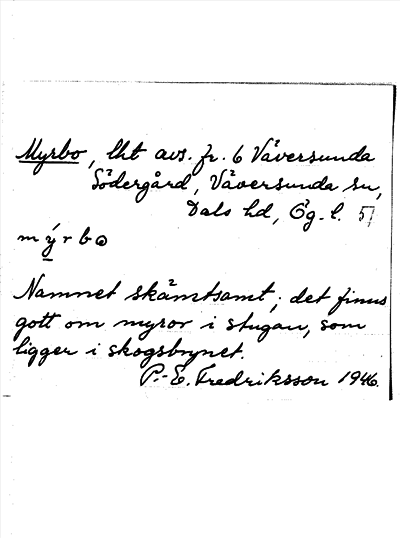 Myrbo, lht avs. fr. 6 Väversunda
Södergård, Väversunda sn,
Dals hd, Ög. l. 57
m ý r b o
Namnet skämtsamt; det finns
gott om myror i stugan, som
ligger i skogsbrynet.
P.-E. Fredriksson 1946.